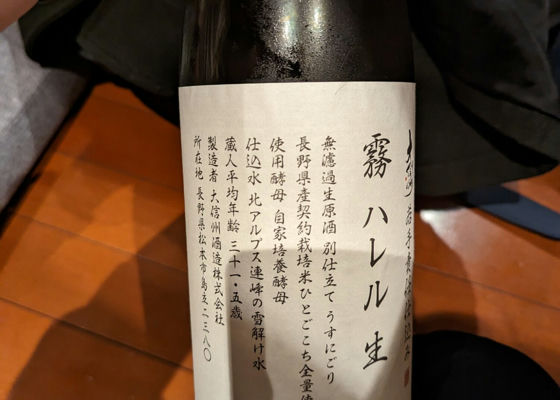 若手責任仕込み
霧 ハレル 生
無濾過生原酒 別仕立て うすにごり
長野県産契約栽培米ひとごこち全量使
使用酵母 自家培養酵母
仕込水 北アルプス連峰の雪解け水
蔵人平均年齢 三十一・五歳
製造者 大信州酒造株式会社
所在地 長野県松本市島立二三八〇